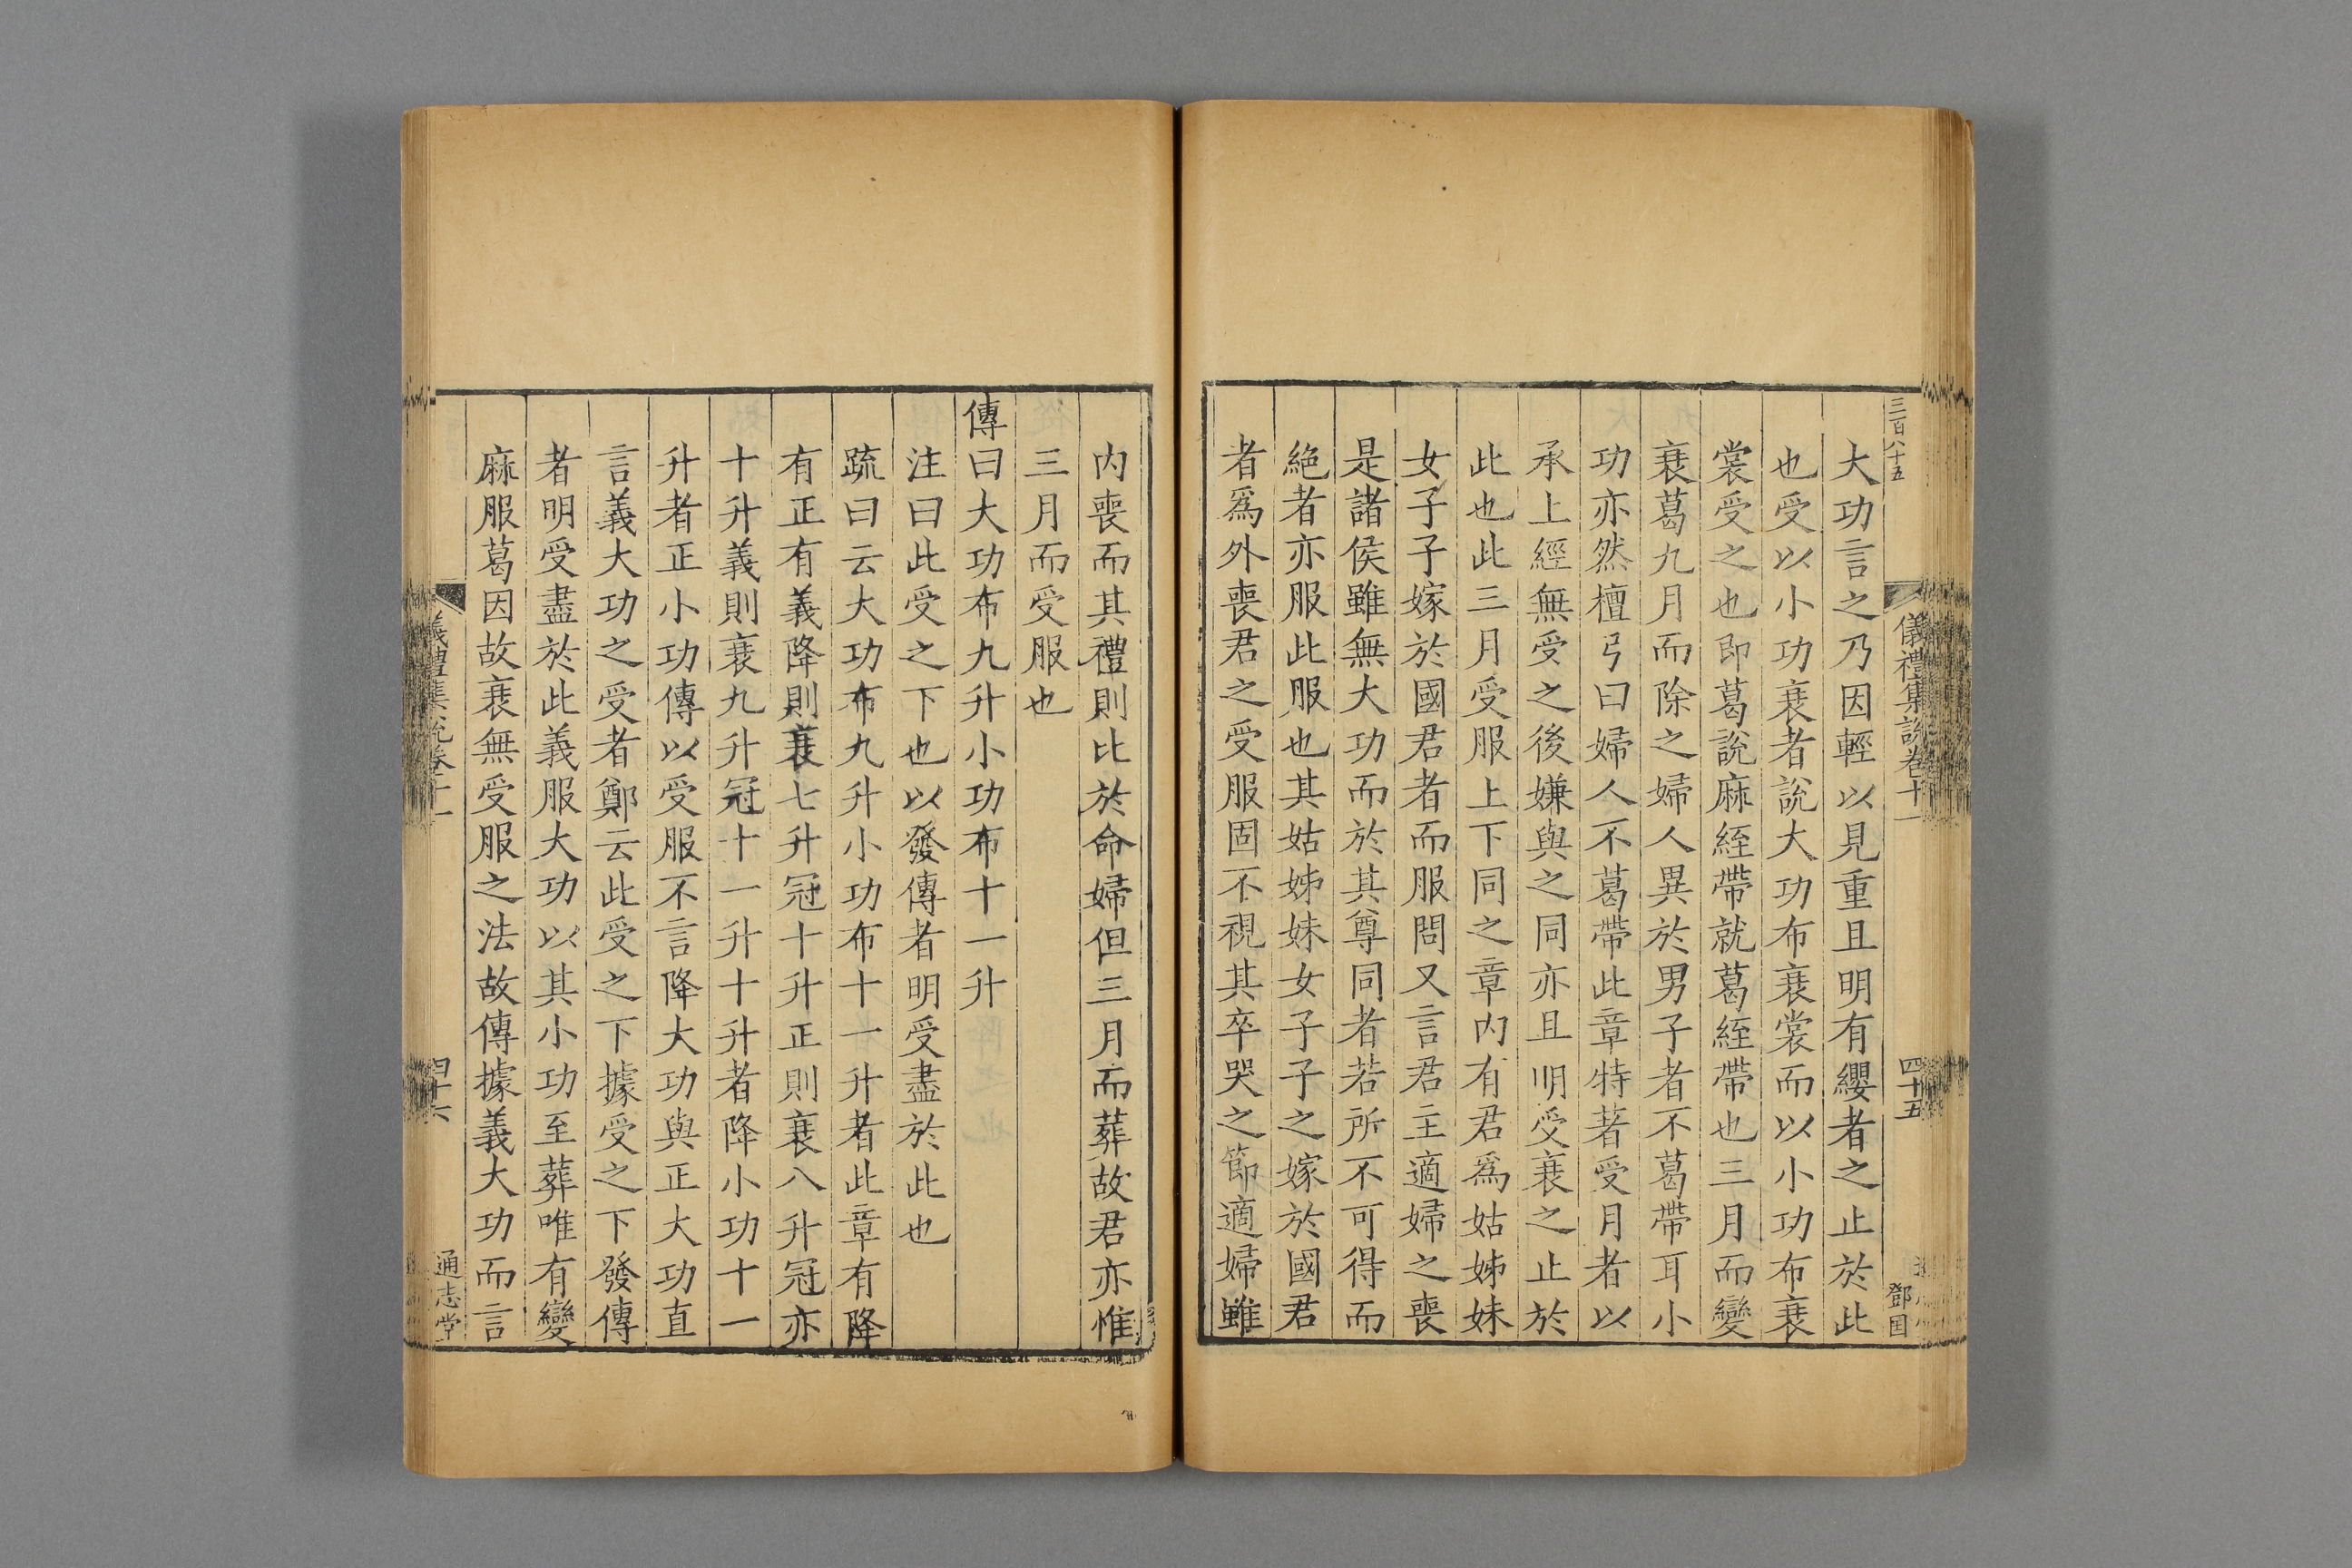 三百八十五
儀禮集說卷十一
四十五
鄧国
大功言之乃因輕以見重且明有纓者之止於此
也受以小功衰者說大功布衰裳而以小功布衰
裳受之也即葛說麻絰帶就葛絰帶也三月而變
衰葛九月而除之婦人異於男子者不葛帶耳小
功亦然檀弓曰婦人不葛帶此章特著受月者以
承上經無受之後嫌與之同亦且明受衰之止於
此也此三月受服上下同之章内有君爲姑姊妹
女子子嫁於國君者而服問又言君主適婦之喪
是諸侯雖無大功而於其尊同者若所不可得而
絶者亦服此服也其姑姊妹女子子之嫁於國君
者爲外喪君之受服固不視其卒哭之節適婦雖
内喪而其禮則比於命婦但三月而葬故君亦惟
三月而受服也
傳曰大功布九升小功布十一升
注曰此受之下也以發傳者明受盡於此也
䟽曰云大功布九升小功布十一升者此章有降
有正有義降則衰七升冠十升正則衰八升冠亦
十升義則衰九升冠十一升十升者降小功十一
升者正小功傳以受服不言降大功與正大功直
言義大功之受者鄭云此受之下據受之下發傳
者明受盡於此義服大功以其小功至葬唯有變
麻服葛因故衰無受服之法故傳據義大功而言
儀禮集說卷十一
四十六
通志堂